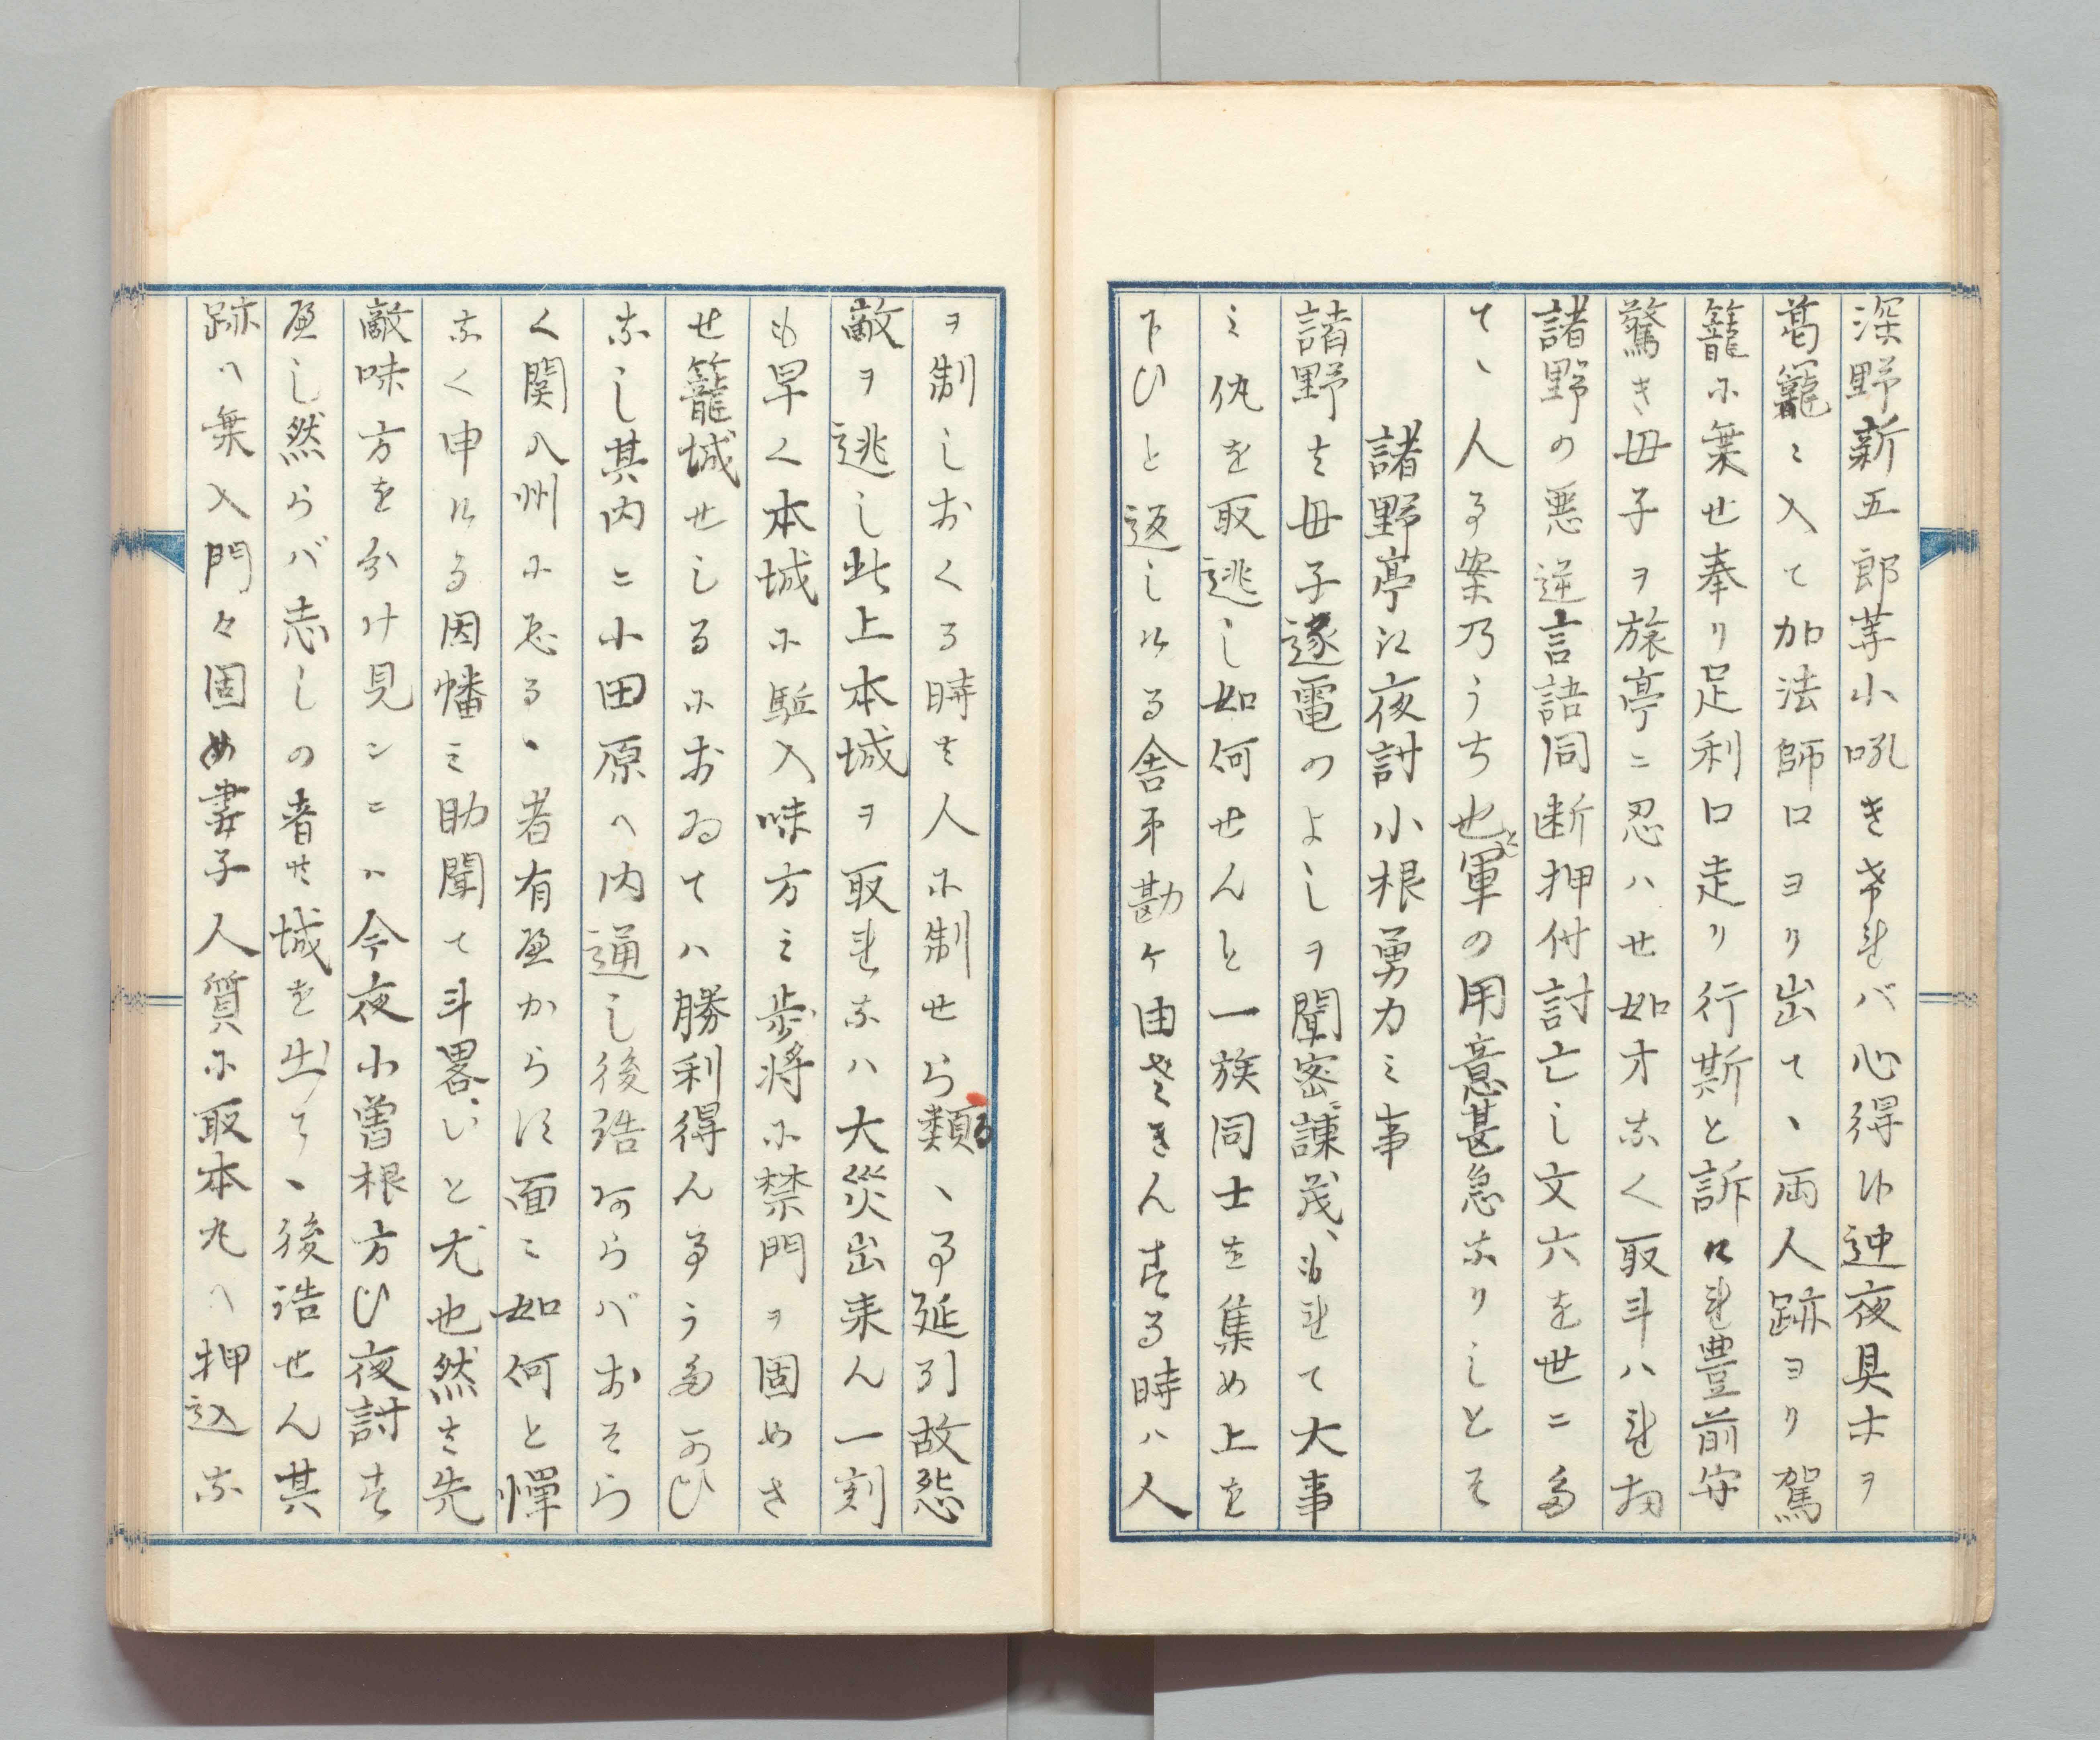 深野新五郎等小吼き希れバ心得候迚夜具ホヲ
葛籠ニ入て加法師口ヨリ出て、両人跡ヨリ駕
籠ホ乗せ奉リ足利口走リ行斯と訴ければ豊前守
驚き母子ヲ旅亭ニ忍ハせ如才なく取斗ハれ扨
諸野の悪逆言語同断押付討亡し文六を世ニ出
て、人る事案乃うち也と軍の用意甚急なりしとそ
諸野亭江夜討小根勇力ミ事
諸野き母子逐電のよしヲ聞密ニ謀茂、もれて大事
ミ仇を取逃し如何せんと一族同士を集め上を
下ひと返しける舎弟勘ケ由さきんする時ハ人
ヲ制しおくる時き人ホ制せら類、る事延引故怨
敵ヲ逃し此上本城ヲ取れなハ大災出来ん一刻
も早く本城ホ駈入味方ミ歩将ホ禁門ヲ固めさ
せ籠城せしるホおゐてハ勝利得ん事うたかひ
なし其内ニ小田原へ内通し後詰あらバおそら
く関八州ホ忍る、者有へからす面ニ如何と憚
なく申ける因幡ミ助聞て斗畧いと尤也然き先
敵味方を分け見ンニハ今夜小曽根方ひ夜討す
へし然らバ志しの者共城を出て、後詰せん其
跡へ乗入門々固め妻子人質ホ取本丸へ押込な